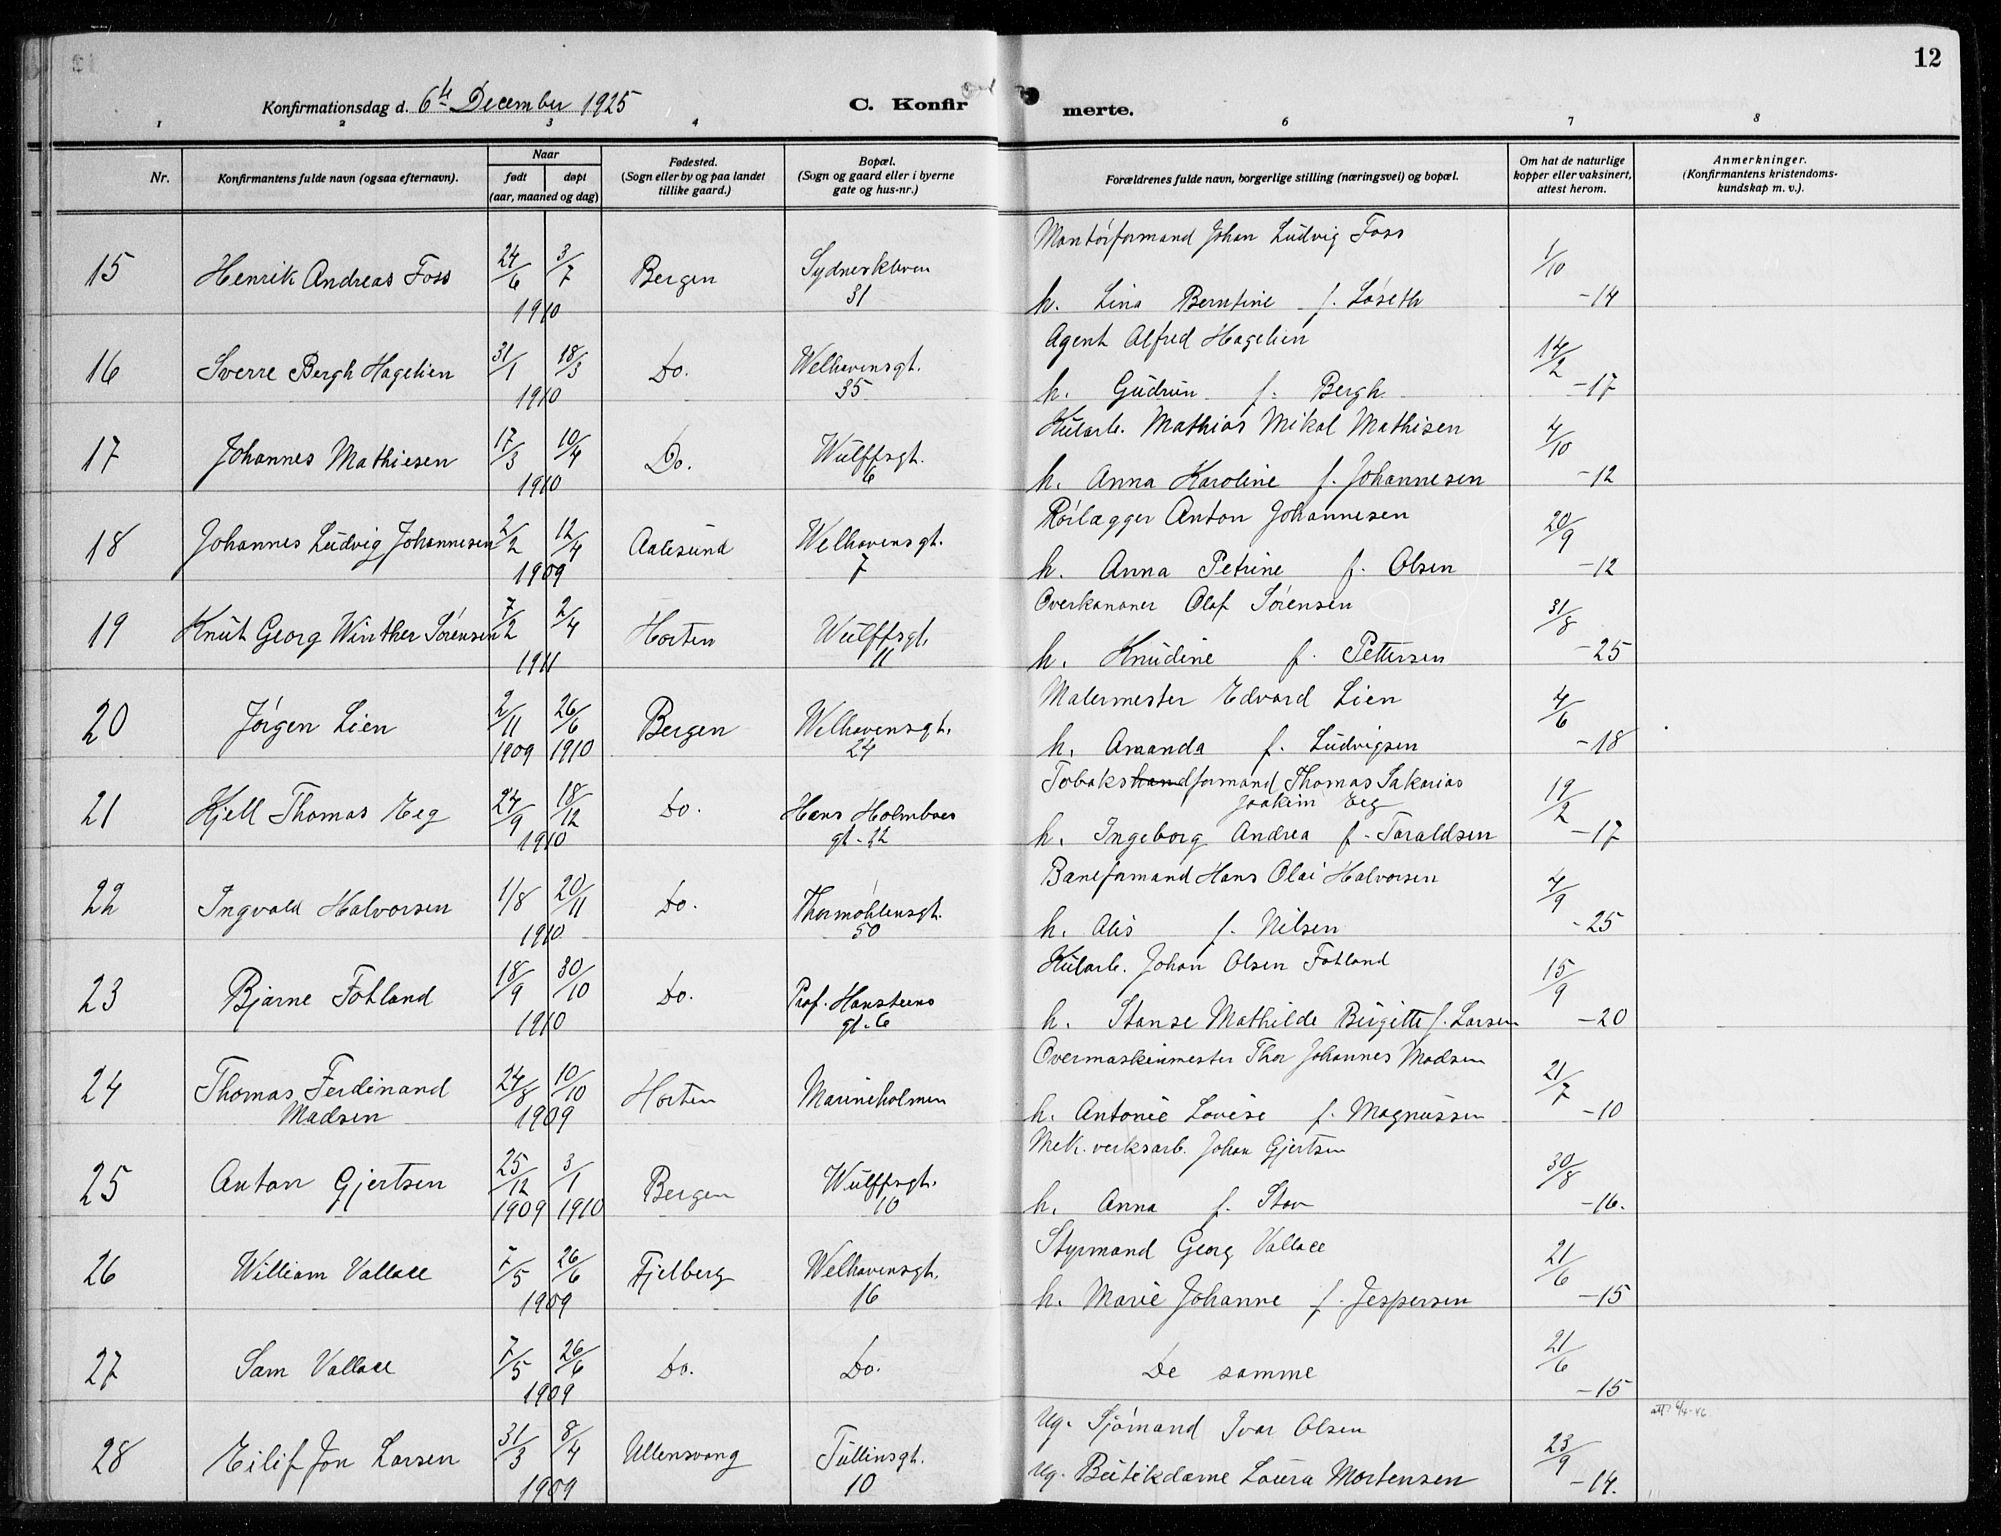 12
Konfirmationsdag d. 6te December 1925
C. Konfir
merte.
1 2 3 4 5 6 7 8
Nr.
Konfirmantens fulde navn (ogsaa efternavn).
Naar
født døpt
(aar, maaned og dag)
Fødested.
(Sogn eller by og paa landet
tillike gaard.)
Bopæl.
(Sogn og gaard eller i byerne
gate og hus-nr.)
Forældrenes fulde navn, borgerlige stilling (næringsvei) og bopæl.
Om hat de naturlige
kopper eller vaksinert,
attest herom.
Anmerkninger.
(Konfirmantens kristendoms-
kundskap m. v.).
15 Henrik Andreas Foss 24/6 3/7 1910 Bergen Sydneskleven 31
Montørformand Johan Ludvig Foss
h. Lina Berntine f. Løseth 1/10 -14
16 Sverre Bergh Hagelien 31/1 18/3 1910 Do. Welhavensgt. 35
Agent Alfred Hagelien
h. Gudrun f. Bergh 14/2 -17
17 Johannes Mathiesen 17/3 10/4 1910 Do. Wulffsgt. 6
Kularb. Mathias Mikal Mathisen
h. Anna Karoline f. Johannesen 4/10 -12
18 Johannes Ludvig Johannesen 2/2 12/4 1909 Aalesund Welhavensgt. 7
Rørlægger Anton Johannesen
h. Anna Petrine f. Olsen 20/9 -12
19 Knut Georg Winther Sørensen 7/2 2/4 1911 Horten Wulffsgt. 11
Overkanoner Olaf Sørensen
h. Knudine f. Pettersen 31/8 -25
20 Jørgen Lien 2/11 1909 26/6 1910 Bergen Welhavensgt. 24
Malermester Edvard Lien
h. Amanda f. Ludvigsen 4/6 -18
21 Kjell Thomas Eeg 24/9 18/12 1910 Do. Hans Holmboes gt. 22
Tobakshandformand Thomas Sakarias
Joakim Eeg
h. Ingeborg Andrea f. Taraldsen 19/2 -17
22 Ingvald Halvorsen 1/8 20/11 1910 Do. Thormøhlensgt. 50
Baneformand Hans Olai Halvorsen
h. Alis f. Nilsen 4/9 -25
23 Bjarne Fotland 18/9 30/10 1910 Do. Prof. Hansteens gt. 6
Kularb. Johan Olsen Fotland
h. Stanse Mathilde Birgitte f. Larsen 15/9 -20
24 Thomas Ferdinand
Madsen 24/8 10/10 1909 Horten Marineholmen
Overmaskinmester Thor Johannes Madsen
h. Antonie Lovise f. Magnussen 21/7 -10
25 Anton Gjertsen 25/12 1909 3/1 1910 Bergen Wulffsgt. 10
Mek. verksarb. Johan Gjertsen
h. Anna f. Stav 30/8 -16.
26 William Vallace 7/5 26/6 1909 Fjelberg Welhavensgt. 16
Styrmand Georg Vallace
h. Marie Johanne f. Jespersen 21/6 -15
27 Sam Vallace 7/5 26/6 1909 Do. Do.
De samme 21/6 -15
28 Eilif Jon Larsen 31/3 8/4 1909 Ullensvang Tullinsgt. 10
Ug. Sjømand Ivar Olsen
Ug. Butikdame Laura Mortensen 23/9 -14.